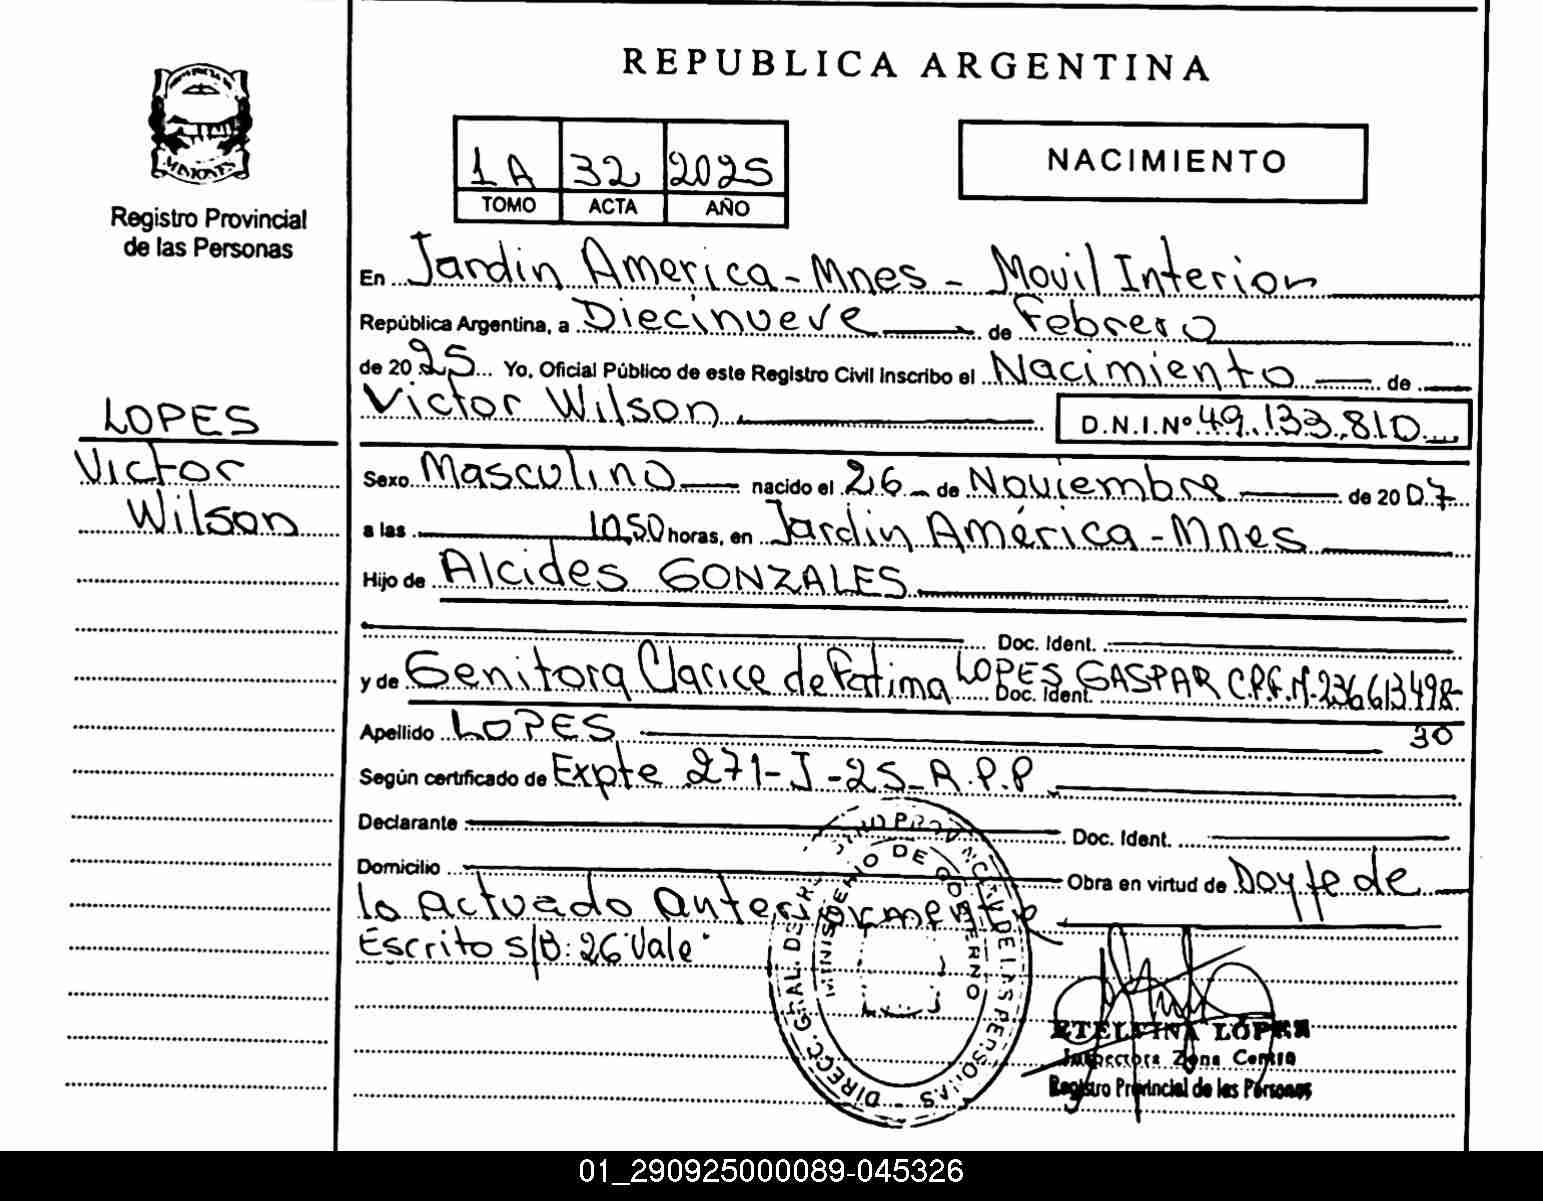 REPUBLICA ARGENTINA
MISIONES
Registro Provincial
de las Personas
1A 32 2025
TOMO ACTA AÑO
NACIMIENTO
En Jardin America - Mnes - Movil Interior
República Argentina, a Diecinueve de Febrero
de 2025 Yo, Oficial Público de este Registro Civil inscribo el Nacimiento de
Victor Wilson D.N.I.Nº 49.133.810
LOPES
Victor
Wilson
Sexo Masculino nacido el 26 de Noviembre de 2007
a las 10,50 horas, en Jardin América - Mnes
Hijo de Alcides GONZALES
Doc. Ident.
y de Genitora Clarice de Fatima LOPES GASPAR Doc. Ident. C.P.F. Nº 236613498-
30
Apellido LOPES
Según certificado de Expte 271-J-25-R.P.P
Declarante Doc. Ident.
Domicilio Obra en virtud de Doy fe de
lo Actuado Anteriormente
Escrito s/B: 26 "Vale"
DIRECC. GRAL. DEL REGISTRO PROVINCIAL DE LAS PERSONAS
MINISTERIO DE GOBIERNO
ETELVINA LÓPEZ
Inspectora Zona Centro
Registro Provincial de las Personas
01_290925000089-045326